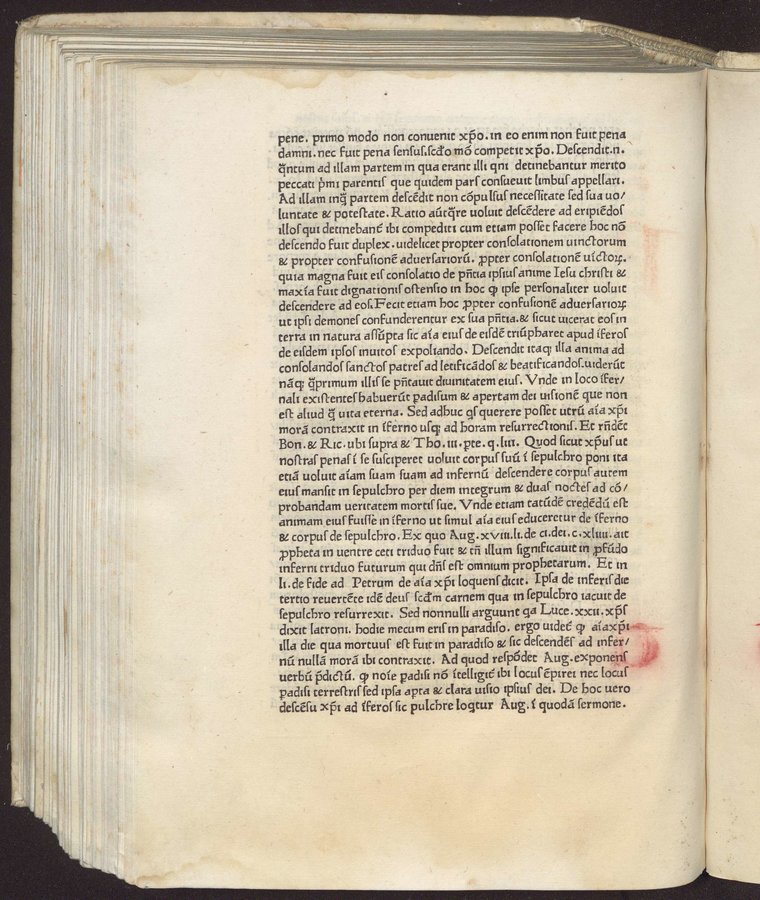 pene. primo modo non conuenit xp̄o. in eo enim non fuit pena
damni. nec fuit pena sensus. scd̄o mō competit xp̄o. Descendit. n.
q̄ntum ad illam partem in qua erant illi qui detinebantur merito
peccati p̄mi parentis que quidem pars consueuit limbus appellari.
Ad illam inq̄ partem descēdit non cōpulsus necessitate sed sua uo/
luntate & potestate. Ratio aūt q̄re uoluit descēdere ad eripiēdos
illos qui detinebant̄ ibi compediti cum etiam posset facere hoc nō
descendo fuit duplex. uidelicet propter consolationem uinctorum
& propter confusionē aduersariorū. ꝓpter consolationē uictoꝝ.
quia magna fuit eis consolatio de pn̄tia ipsius anime Iesu christi &
maxīa fuit dignationis ostensio in hoc ꝙ ipse personaliter uoluit
descendere ad eos. Fecit etiam hoc ꝓpter confusionē aduersarioꝝ
ut ipsi demones confunderentur ex sua pn̄tia. & sicut uicerat eos in
terra in natura assūpta sic aīa eius de eisdē triūpharet apud īferos
de eisdem ipsos inuitos expoliando. Descendit itaq; illa anima ad
consolandos sanctos patres ad letificādos & beatificandos. uiderūt
nāq; q̄primum illis se pn̄tauit diuinitatem eius. Vnde in loco īfer/
nali existentes habuerūt padisum & apertam dei uisionē que non
est aliud q̄ uita eterna. Sed adhuc qs querere posset utrū aīa xp̄i
morā contraxit in īferno usq; ad horam resurrectionis. Et rn̄dēt
Bon. & Ric. ubi supra & Tho. iii. pte. q. liii. Quod sicut xp̄us ut
nostras penas ī se susciperet uoluit corpus suū ī sepulchro poni ita
etiā uoluit aīam suam suam ad infernū descendere corpus autem
eius mansit in sepulchro per diem integrum & duas noctes ad cō/
probandam ueritatem mortis sue. Vnde etiam tātūdē credēdū est
animam eius fuisse in īferno ut simul aīa eius educeretur de īferno
& corpus de sepulchro. Ex quo Aug. xviii. li. de ci. dei. c. xliiii. ait
ꝓpheta in uentre ceti triduo fuit & tn̄ illum significauit in ꝓfūdo
inferni triduo futurum qui dn̄s est omnium prophetarum. Et in
li. de fide ad Petrum de aīa xp̄i loquens dicit. Ipsa de inferis die
tertio reuertēte idē deus scd̄m carnem qua in sepulchro iacuit de
sepulchro resurrexit. Sed nonnulli arguunt qa Luce. xxii. xp̄s
dixit latroni. hodie mecum eris in paradiso. ergo uidet̄ ꝙ aīa xp̄i
illa die qua mortuus est fuit in paradiso & sic descendēs ad infer/
nū nullā morā ibi contraxit. Ad quod respōdet Aug. exponens
uerbū p̄dictū. ꝙ noīe padisi nō ītelligit̄ ibi locus ēpirei nec locus
padisi terrestris sed ipsa apta & clara uisio ipsius dei. De hoc uero
descēsu xp̄i ad īferos sic pulchre loqtur Aug. ī quodā sermone.